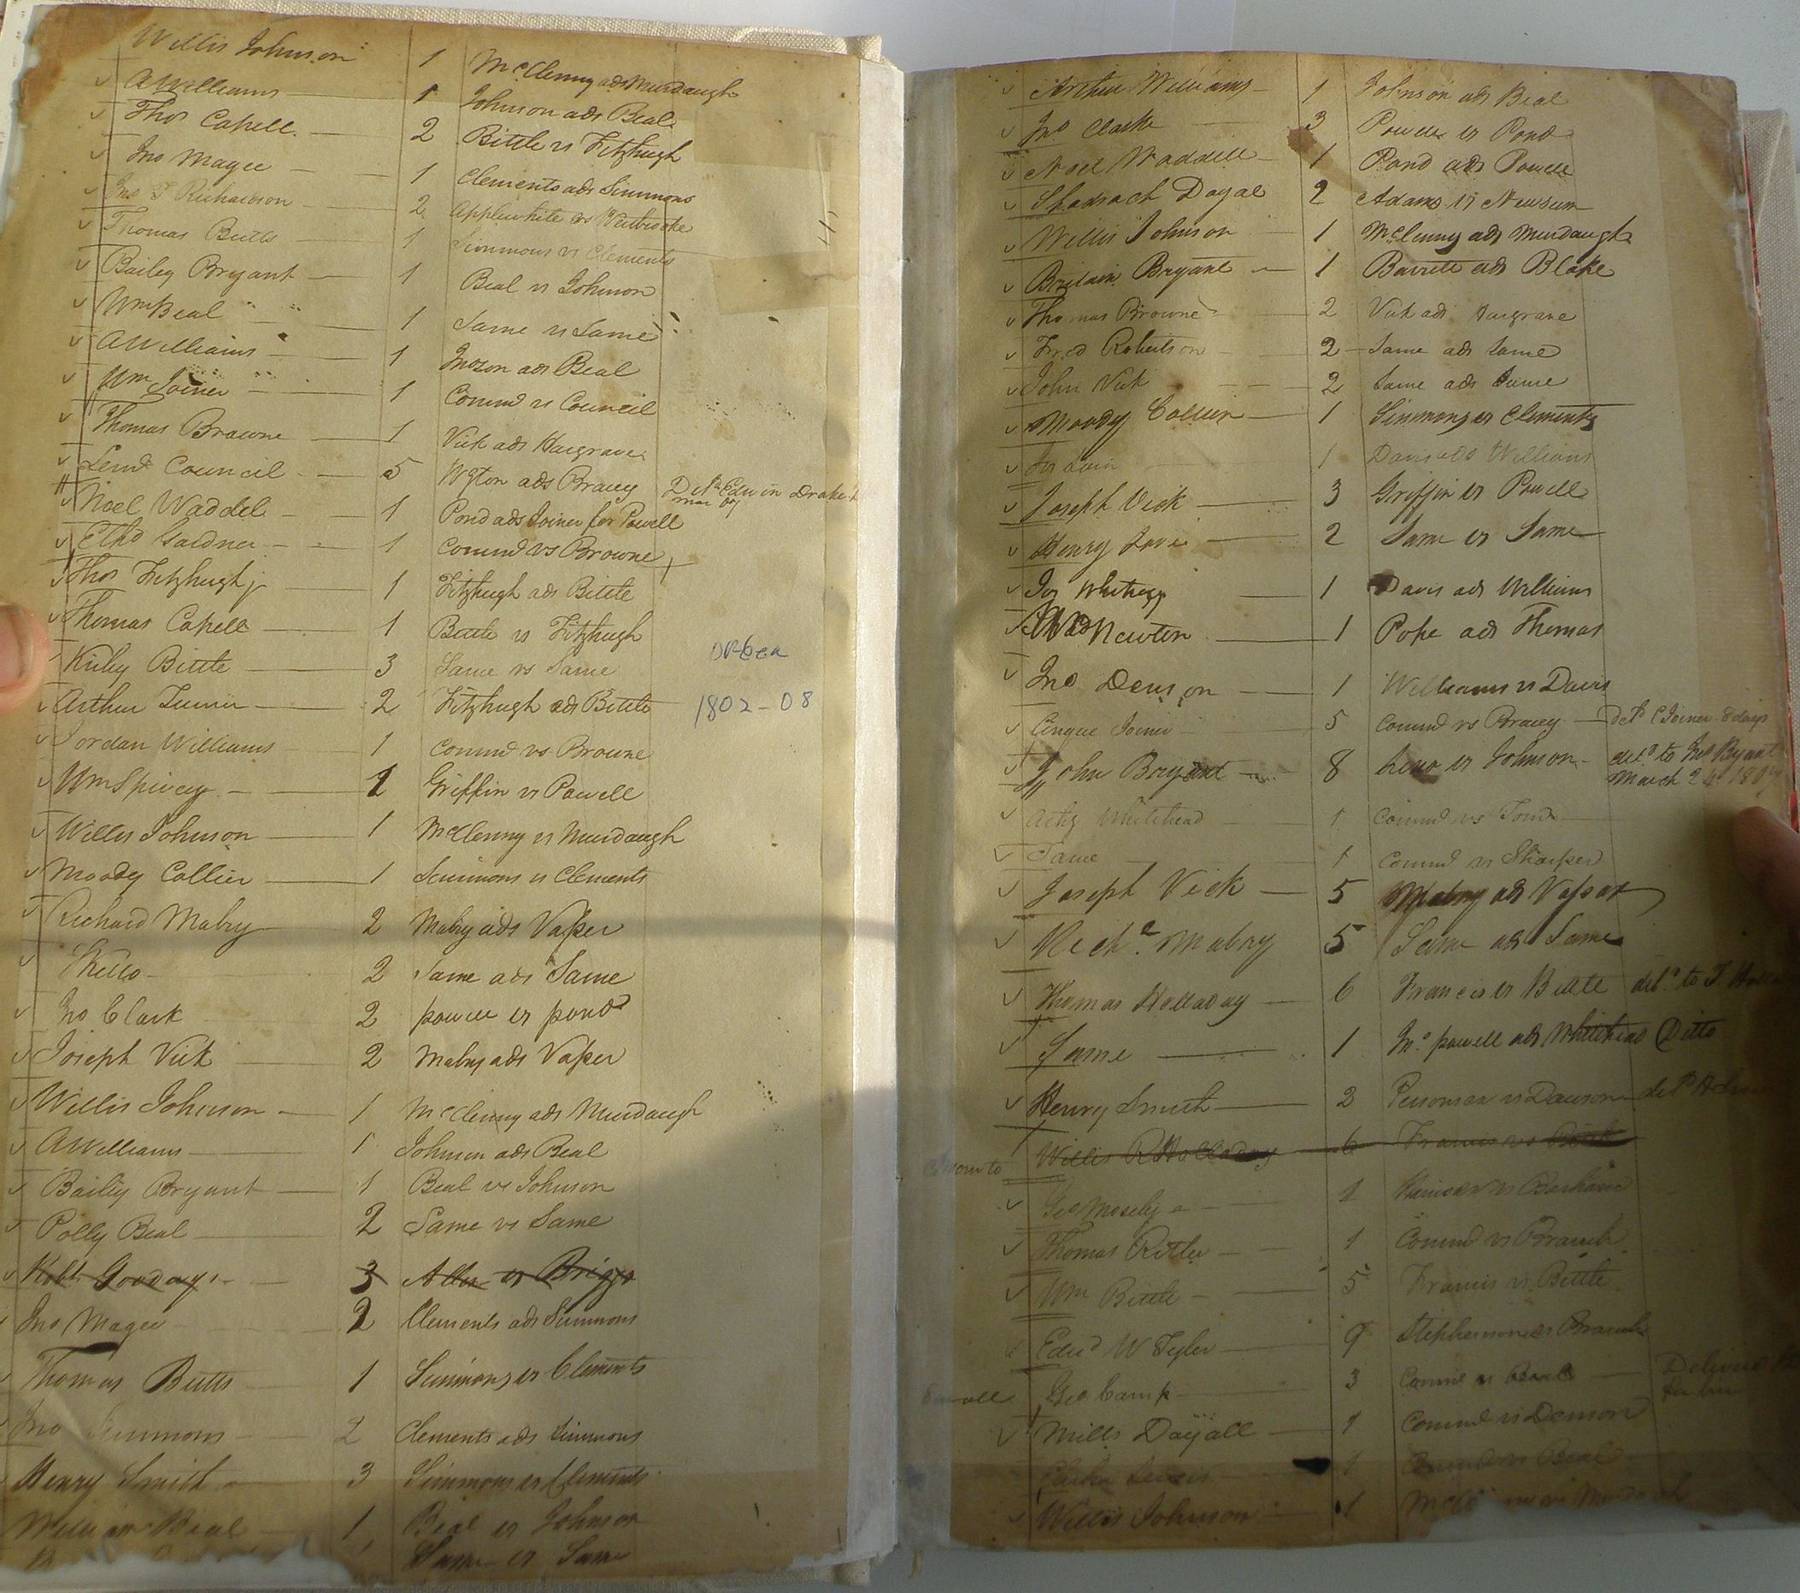 Willis Johnson 1 McClenny ads Murdaugh
A Williams 1 Johnson ads Beal
Thos Capell 2 Bittle vs Fitzhugh
Jno Magee 1 Clements ads Simmons
Jno T Richardson 2 Applewhite vs Westbrooke
Thomas Butts 1 Simmons vs Clements
Bailey Bryant 1 Beal vs Johnson
Wm Beal 1 Same vs Same
A Williams 1 ads Beal
Wm Joiner 1 Commd vs Council
Thomas Browne 1 Vick ads Hargrave
Lemd Council 5 ads Bracey
Noel Waddel 1 Pond ads Joiner for Powell
Ethd Gardner 1 Commd vs Browne
Thos Fitzhugh jr 1 Fitzhugh ads Bittle
Thomas Capell 1 Bittle vs Fitzhugh
Kirby Bittle 3 Same vs Same
Arthur 2 Fitzhugh ads Bittle
1802-08
Jordan Williams 1 Commd vs Browne
Wm Spivey 1 Griffin vs Powell
Willis Johnson 1 McClenny vs Murdaugh
Moody Collier 1 Simmons vs Clements
Richard Mabry 2 Mabry ads Vasser
2 Same ads Same
Jno Clark 2 powell vs pond
Joseph Vick 2 Mabry ads Vasser
Willis Johnson 1 McClenny ads Murdaugh
A Williams 1 Johnson ads Beal
Bailey Bryant 1 Beal vs Johnson
Polly Beal 2 Same vs Same
3 vs Briggs
Jno Magee 2 Clements ads Simmons
Thomas Butts 1 Simmons vs Clements
Jno Simmons 2 Clements ads Simmons
Henry Smith 3 Simmons vs Clements
William Beal 1 Beal vs Johnson
Same vs Same
Arthur Williams 1 Johnson ads Beal
Jno Clarke 3 Powell vs Pond
Noel Waddell 1 Pond ads Powell
Shadrach Doyal 2 Adams vs Newsum
Willis Johnson 1 McClenny ads Murdaugh
Britain Bryant 1 Barrett ads Blake
Thomas Browne 2 Vick ads Hargrave
Fred Robertson 2 Same ads Same
John Vick 2 Same ads Same
Moody Collier 1 Simmons vs Clements
1 Davis ads Williams
Joseph Vick 3 Griffin vs Powell
Henry 2 Same vs Same
Jos 1 Davis ads Williams
Newton 1 Pope ads Thomas
Jno Denson 1 Williams vs Davis
Joiner 5 Commd vs Bracey Joiner days
John Bryant 8 vs Johnson deld to Jno Bryant
March
Whitehead 1 Commd vs
Same 1 Commd vs Sharper
Joseph Vick 5 Mabry ads Vasser
Richd Mabry 5 Same ads Same
Thomas Holladay 6 Francis vs Bittle deld to T
Same 1 Jno powell ads Whitehead Ditto
Henry Smith 2 vs Dawson
Willis R Holladay 6 Francis vs
Geo Mosely 1 vs Barham
Thomas 1 Commd vs Branch
Wm Bittle 5 Francis vs Bittle
Edwd W Tyler 9 Stephenson vs Branch
Geo Camp 3 Commd vs
Mills Doyall 1 Commd vs Denson
1 Commd vs Beal
Willis Johnson 1